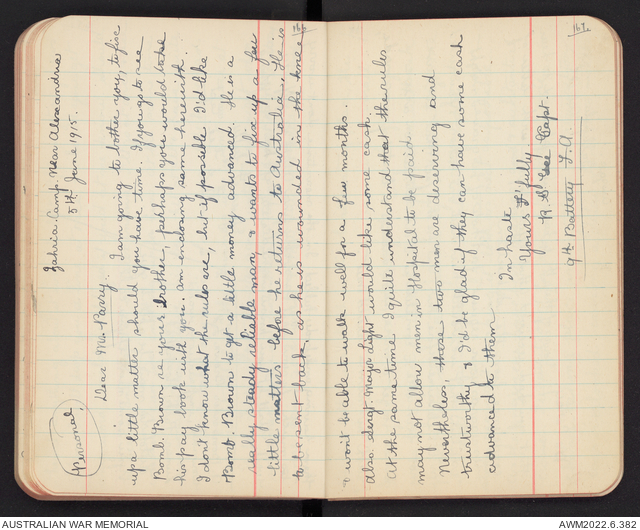 166.
Personal.
Zahria Camp. Near Alexandria
5th June 1915.
Dear Mr Parry.
I am going to bother you, to fix
up a little matter should you have time. If you go to see
Bomb. Brown re yours brother, perhaps you would take
his pay book with you. am enclosing same herewith.
I don't know what the rules are, but if possible I'd like
Bomb. Brown to get a little money advanced. He is a
really steady reliable man, & wants to fix up a few
little matters before he returns to Australia. He is
to be sent back, as he is wounded in the knee
167.
& won't be able to walk well for a few months.
also Sergt. Major Light would like some cash.
At the same time I quite understand that the rules
may not allow men in Hospital to be paid.
Nevertheless, these two men are deserving and
trustworthy & I'd be glad if they can have some cash
advanced to them
In haste
Yours F'fully
Capt.
9th Battery F.A.
AUSTRALIAN WAR MEMORIAL
AWM2022.6.382